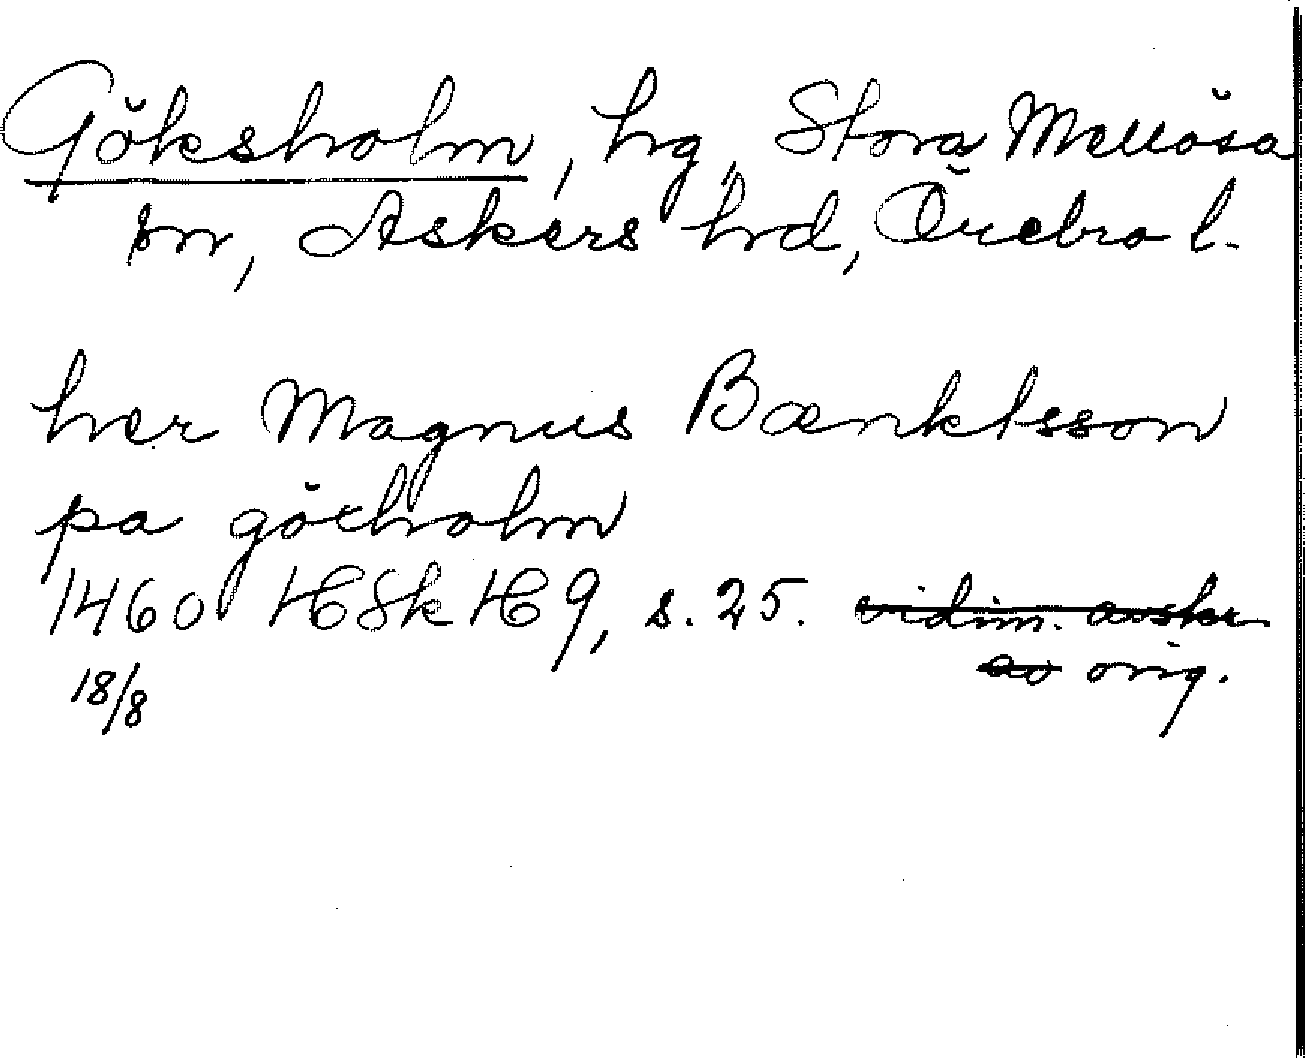 Göksholm, hg, Stora Mellösa
sn, Askers hd, Örebro l.
her Magnus Bænktsson
pa göxholm
1460 HSkH 9, s. 25. vidim. avskr.
av orig.
18/8